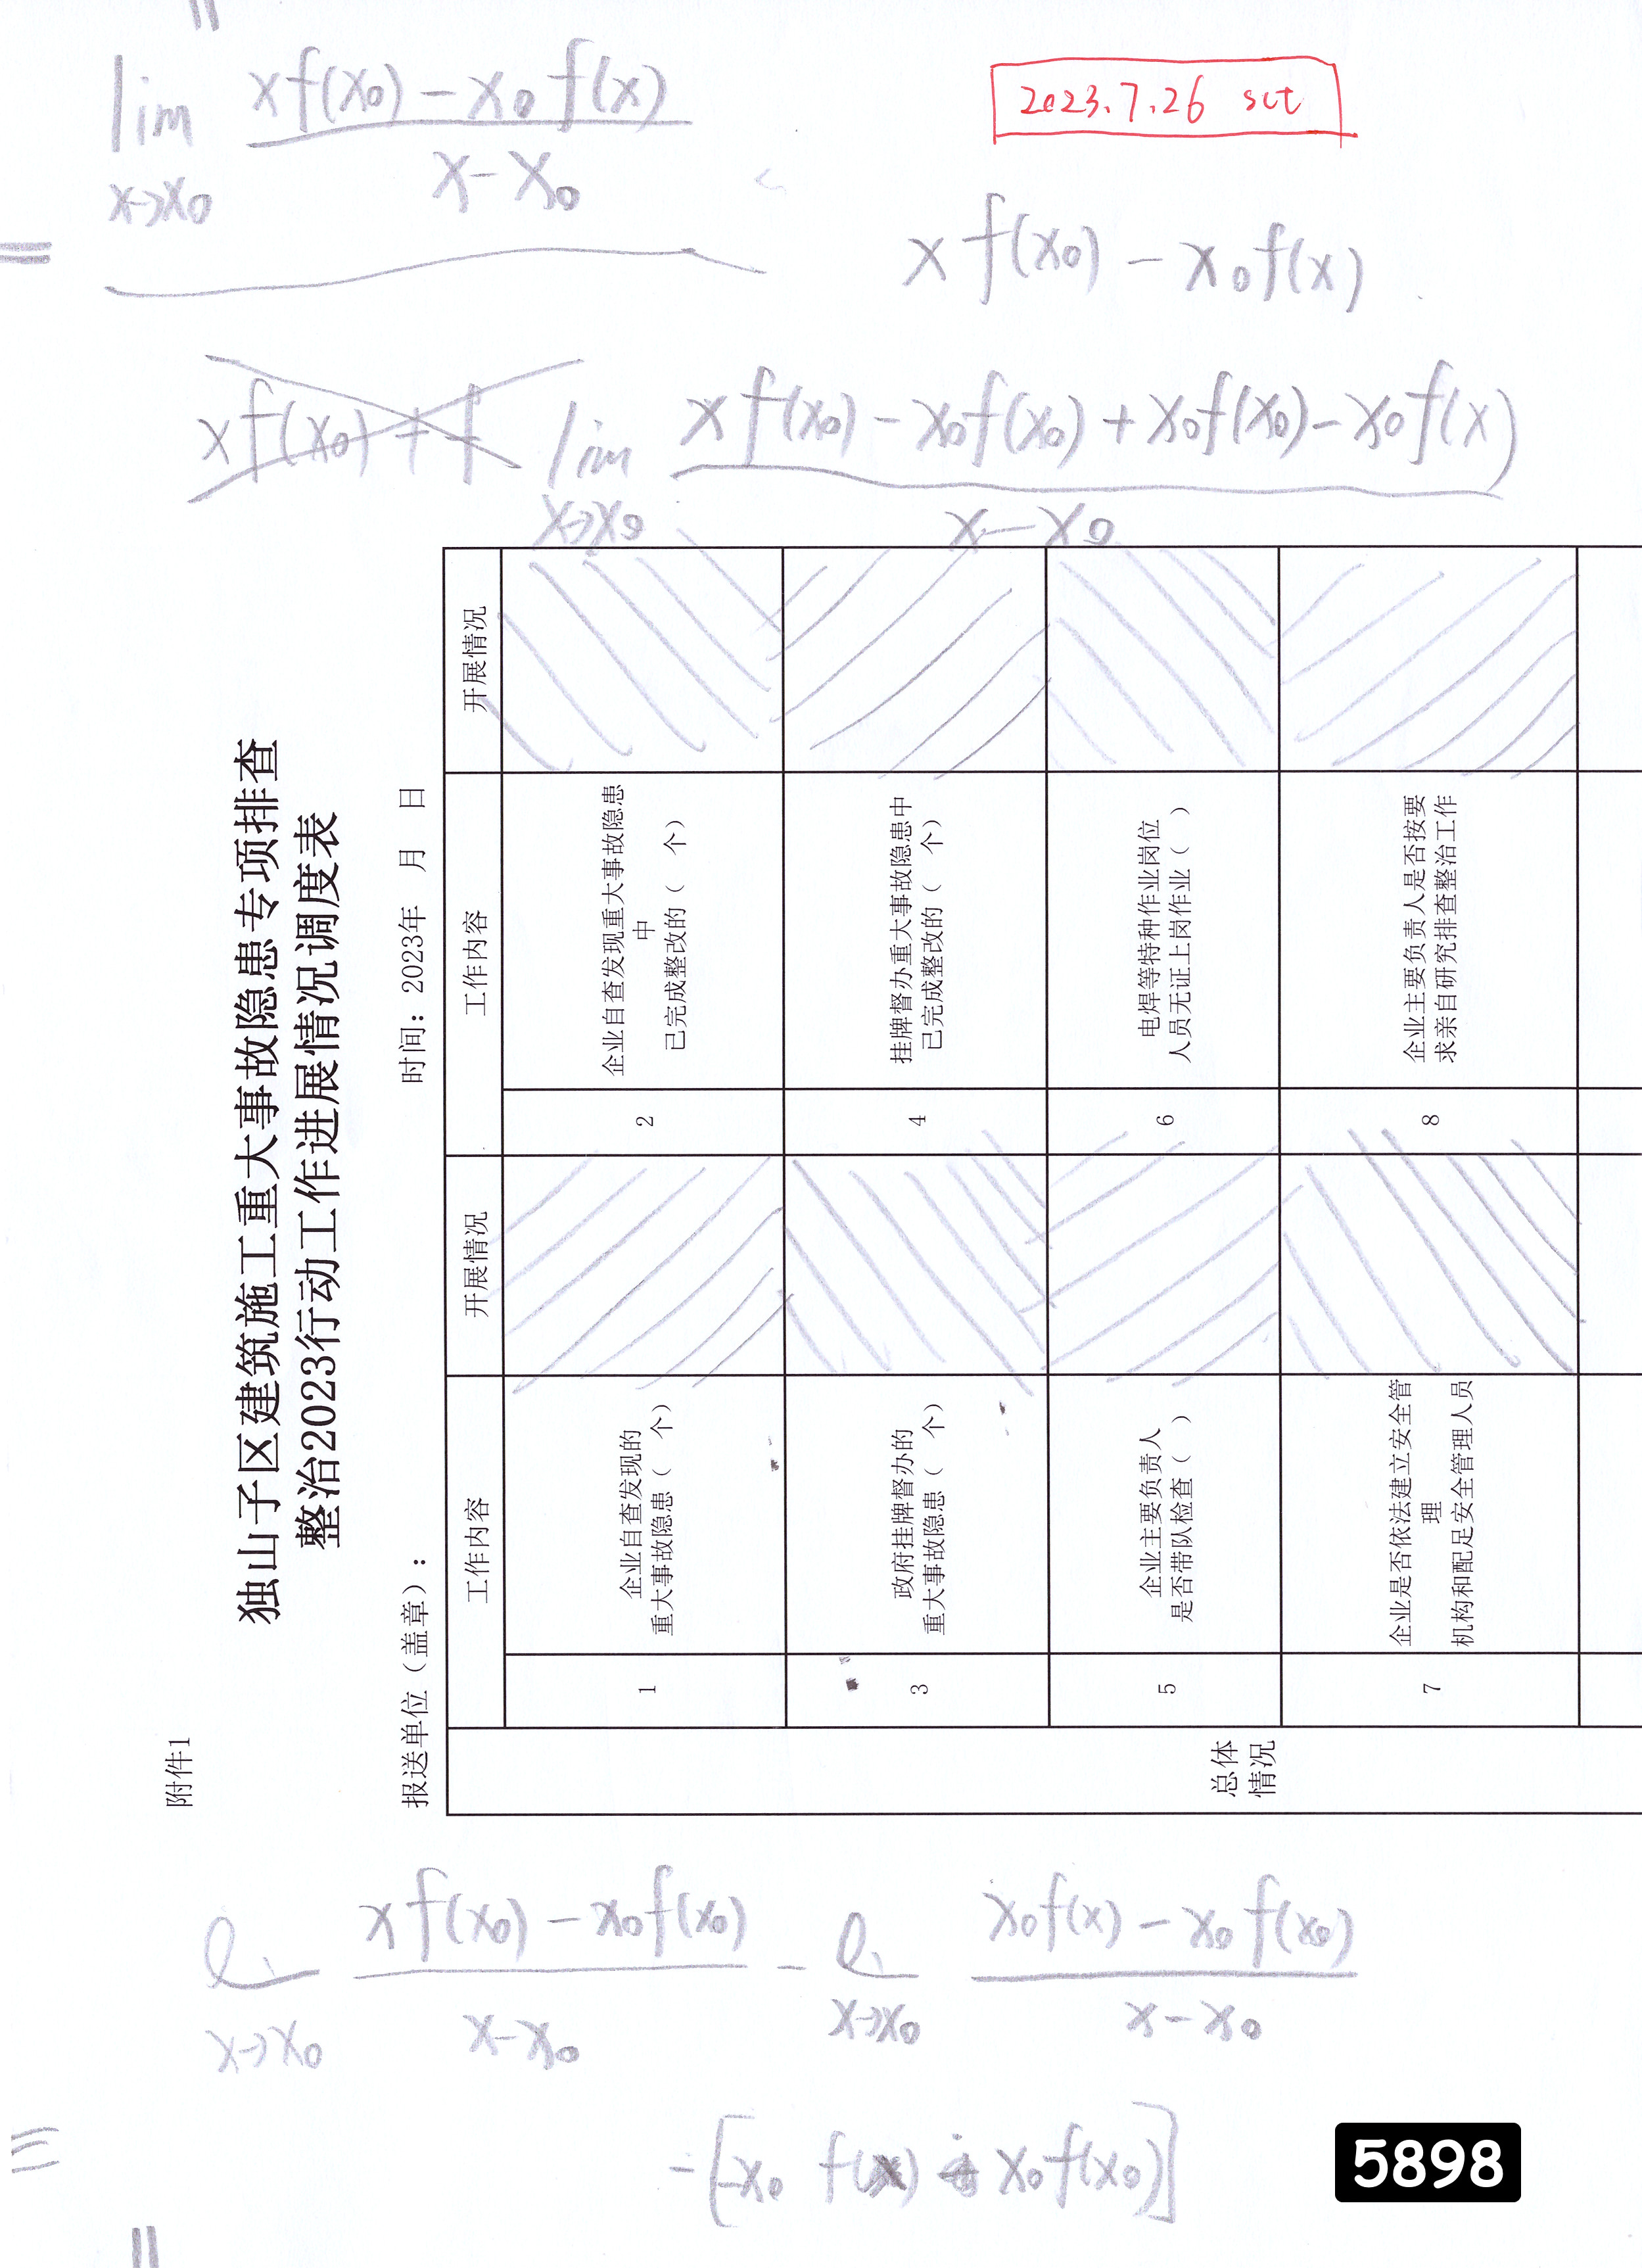 lim xf(x₀) - x₀f(x)
x→x₀ x - x₀
2023.7.26 sct
xf(x₀) - x₀f(x)
xf(x₀) + f
lim xf(x₀) - x₀f(x₀) + x₀f(x₀) - x₀f(x)
x→x₀ x - x₀
附件1
独山子区建筑施工重大事故隐患专项排查
整治2023行动工作进展情况调度表
报送单位（盖章）： 时间：2023年 月 日
工作内容 开展情况 工作内容 开展情况
总体
情况
1 企业自查发现的
重大事故隐患（ 个）
2 企业自查发现重大事故隐患
中
已完成整改的（ 个）
3 政府挂牌督办的
重大事故隐患（ 个）
4 挂牌督办重大事故隐患中
已完成整改的（ 个）
5 企业主要负责人
是否带队检查（ ）
6 电焊等特种作业岗位
人员无证上岗作业（ ）
7 企业是否依法建立安全管
理
机构和配足安全管理人员
8 企业主要负责人是否按要
求亲自研究排查整治工作
xf(x₀) - x₀f(x₀) - x₀f(x) - x₀f(x₀)
x→x₀ x - x₀ x→x₀ x - x₀
-[x₀ f(x) x₀f(x₀)]
5898